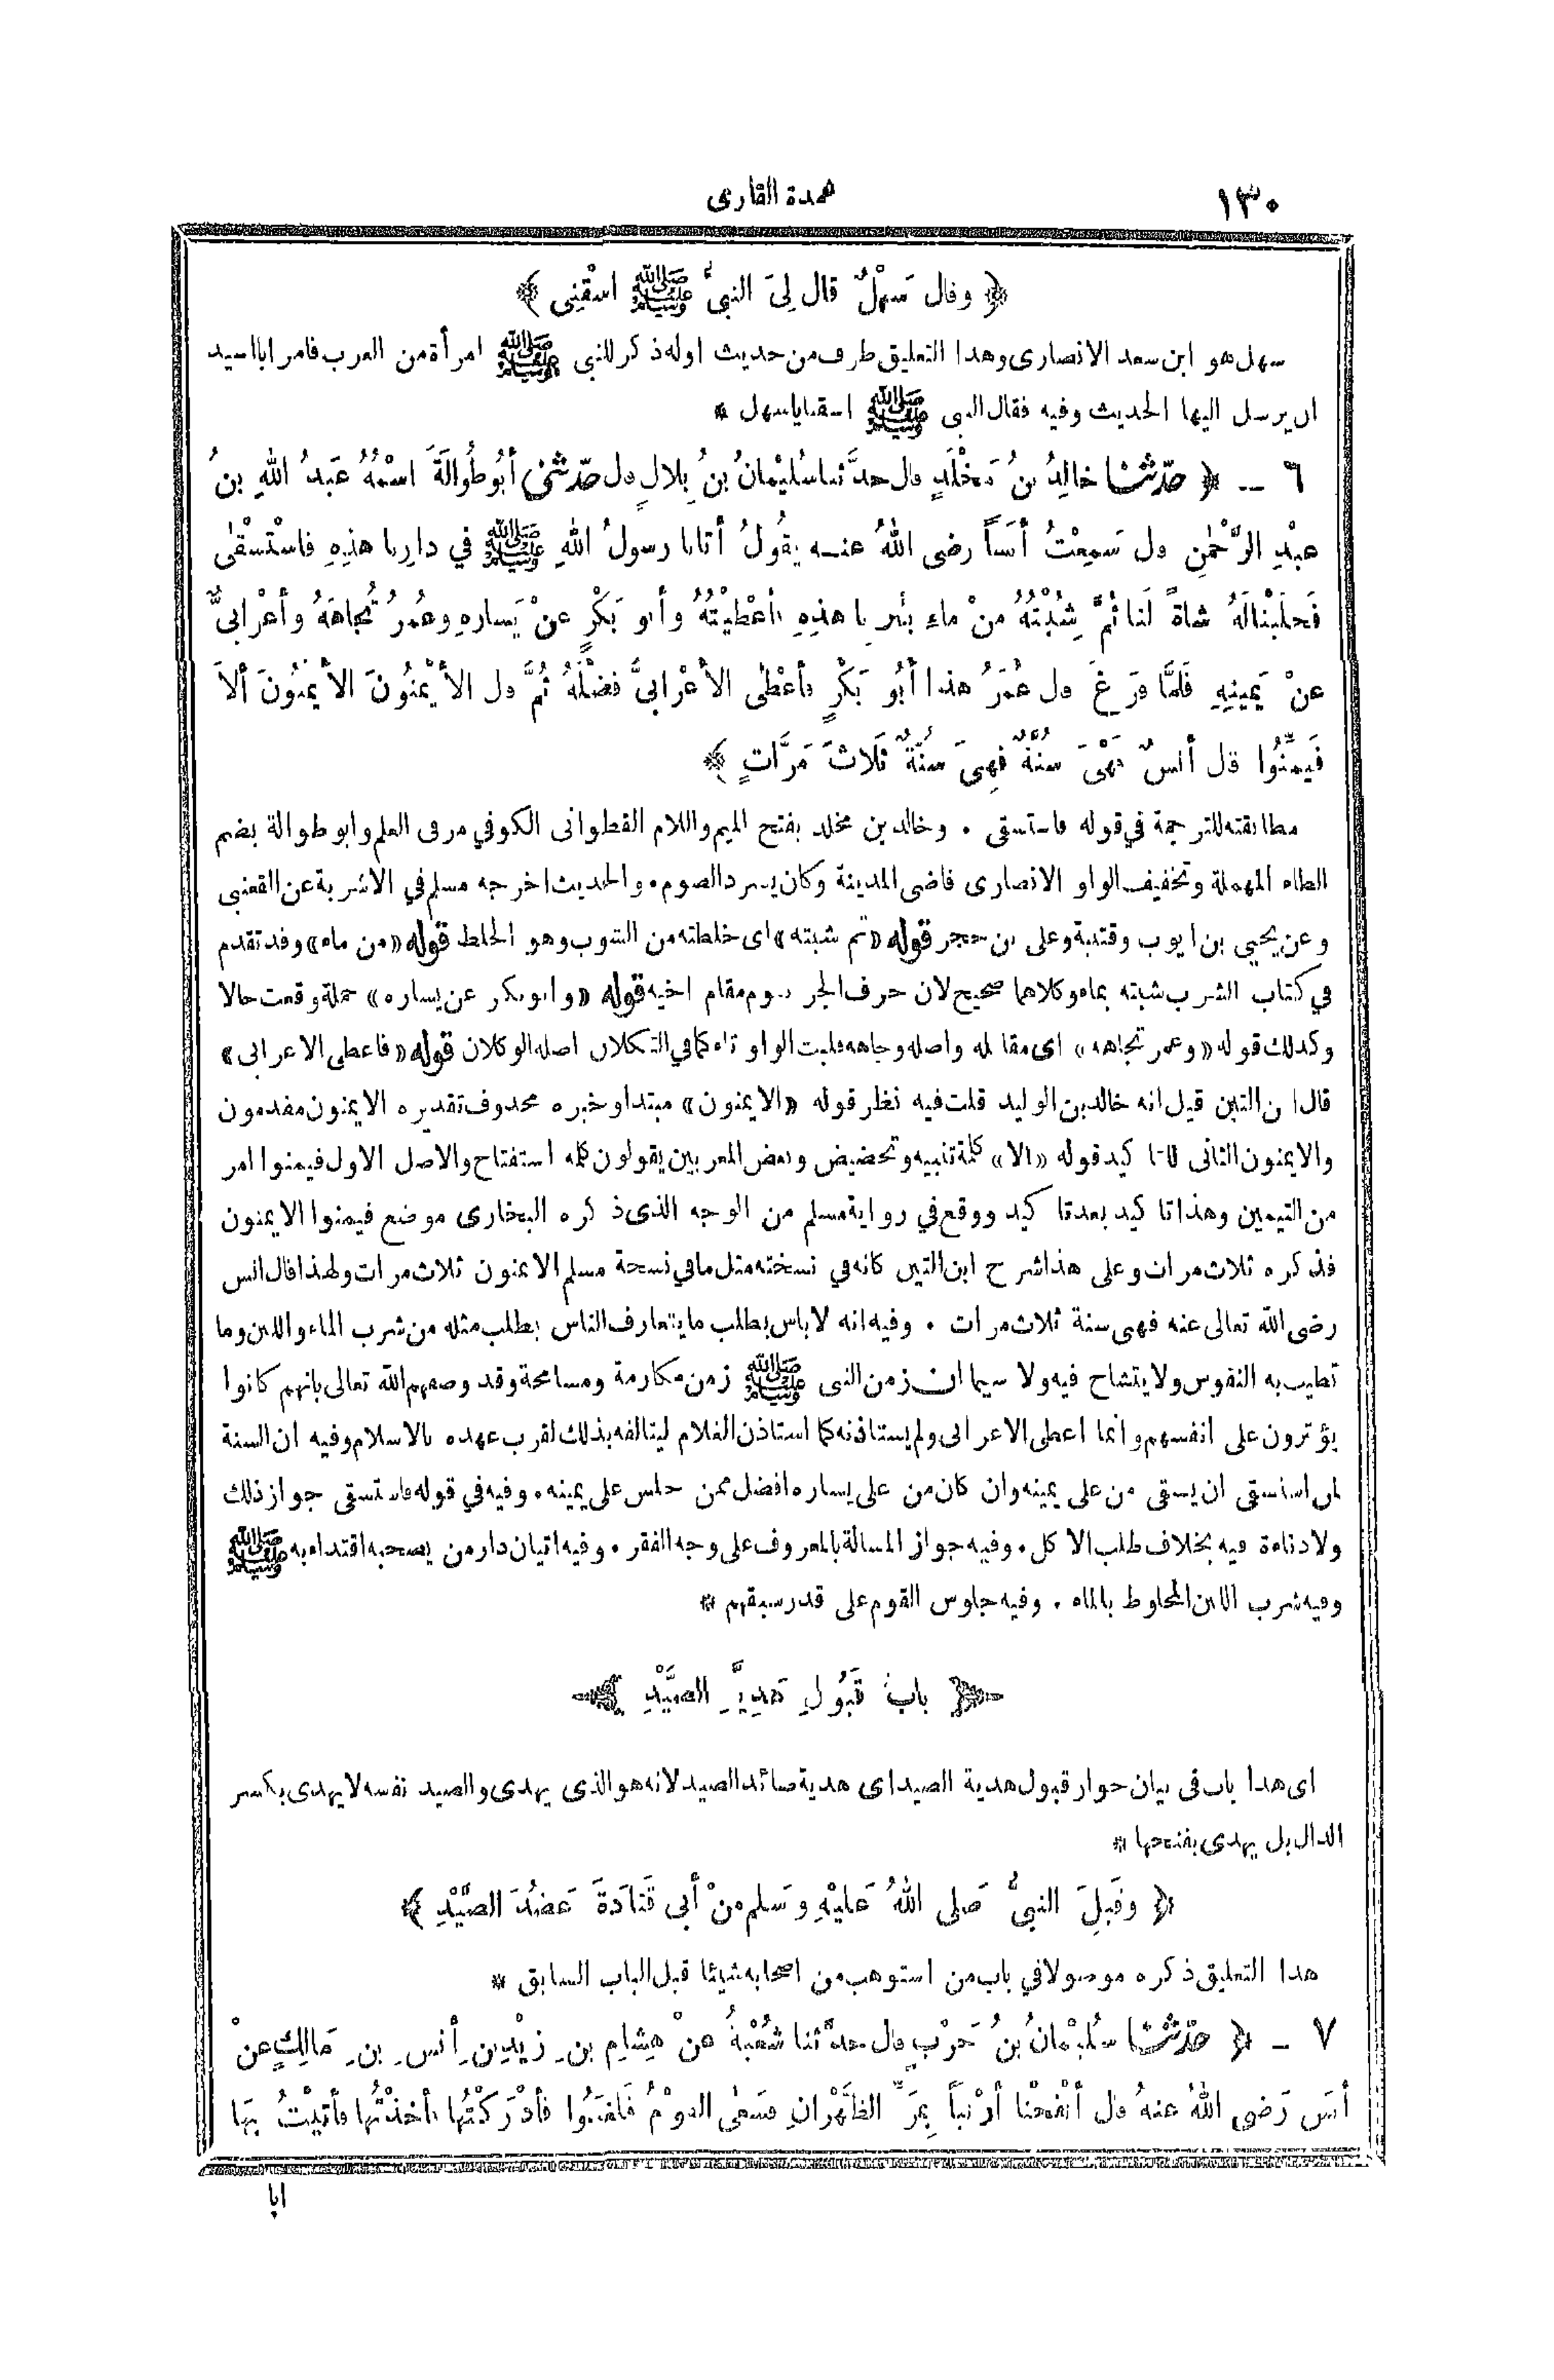 ١٣٠ عمدة القارى
﴿ وقال سَهْلٌ قال لِىَ النبىُّ ﷺ اسْقِنِى ﴾
سهل هو ابن سعد الانصارى وهذا التعليق طرف من حديث اوله ذكر للنبى ﷺ امرأة من العرب فامر ابا اسيد
ان يرسل اليها الحديث وفيه فقال النبى ﷺ اسقنا ياسهل *
٦ ــ ﴿ حدّثنا خالِدُ بنُ مَخْلَدٍ قال حدَّثنا سُلَيْمانُ بنُ بِلالٍ قال حدّثنى أبُو طُوالَةَ اسْمُهُ عَبدُ اللهِ بنُ
عبْدِ الرَّحْمٰنِ قال سَمِعْتُ أنَساً رضى اللهُ عنــه يقُولُ أتانا رسولُ اللهِ ﷺ في دارِنا هذِهِ فاسْتَسْقٰى
فَحَلَبْنا لَهُ شاةً لَنا ثُمَّ شِبْتُهُ منْ ماءِ بئْرِنا هذِهِ فأعْطَيْتُهُ وأبو بَكْرٍ عنْ يَسارهِ وعُمرُ تُجاهَهُ وأعْرابىٌّ
عنْ يَمِينِهِ فَلَمَّا فَرَغَ قال عُمَرُ هذا أبُو بَكْرٍ فأعْطٰى الأعْرابىَّ فضْلَهُ ثُمَّ قال الأيْمَنُونَ الأيْمَنُونَ ألاَ
فَيمِّنُوا قال أنسٌ فَهْىَ سُنَّةٌ فهِىَ سُنَّةٌ ثَلاثَ مَرَّاتٍ ﴾
مطابقته للترجمة في قوله فاستسقى . وخالد بن مخلد بفتح الميم واللام القطوانى الكوفي مر فى العلم وابو طوالة بضم
الطاء المهملة وتخفيف الواو الانصارى قاضى المدينة وكان يسرد الصوم . والحديث اخرجه مسلم في الاشربة عن القعنبى
وعن يحيى بن ايوب وقتيبة وعلى بن حجر قوله «ثم شبته» اى خلطته من الشوب وهو الخلط قوله «من ماء» وقد تقدم
في كتاب الشرب شبته بماء وكلاهما صحيح لان حرف الجر يقوم مقام اخيه قوله «وابو بكر عن يساره» جملة وقعت حالا
وكذلك قوله «وعمر تجاهه» اى مقابله واصله وجاهه فلبت الواو تاء كما في التكلان اصله الوكلان قوله «فاعطى الاعرابى»
قال ابن التين قيل انه خالد بن الوليد قلت فيه نظر قوله «الايمنون» مبتدا وخبره محذوف تقديره الايمنون مقدمون
والايمنون الثانى للتاكيد قوله «الا» كلمة تنبيه وتحضيض وبعض المعربين يقولون كلمه استفتاح والاصل الاول فيمنوا امر
من التيمين وهذا تاكيد بعد تاكيد ووقع في رواية مسلم من الوجه الذى ذكره البخارى موضع فيمنوا الايمنون
فذكره ثلاث مرات وعلى هذا شرح ابن التين كانه في نسخته مثل ما في نسخة مسلم الايمنون ثلاث مرات ولهذا قال انس
رضى الله تعالى عنه فهى سنة ثلاث مرات . وفيه انه لا باس بطلب ما يتعارف الناس بطلب مثله من شرب الماء واللبن وما
تطيب به النفوس ولا يتشاح فيه ولا سيما ان زمن النبى ﷺ زمن مكارمة ومسامحة وقد وصفهم الله تعالى بانهم كانوا
يؤثرون على انفسهم وانما اعطى الاعرابى ولم يستاذنه كما استاذن الغلام ليتالفه بذلك لقرب عهده بالاسلام وفيه ان السنة
لمن استسقى ان يسقى من على يمينه وان كان من على يساره افضل ممن جلس على يمينه . وفيه في قوله فاستسقى جواز ذلك
ولا دناءة فيه بخلاف طلب الاكل . وفيه جواز المسالة بالمعروف على وجه الفقر . وفيه اتيان دار من يصحبه اقتداء به ﷺ
وفيه شرب اللبن المخلوط بالماء . وفيه جلوس القوم على قدر سبقهم *
﴿ بابُ قَبُولِ هَدِيَّةِ الصَّيْدِ ﴾
اى هذا باب فى بيان جواز قبول هدية الصيد اى هدية صائد الصيد لانه هو الذى يهدى والصيد نفسه لا يهدى بكسر
الدال بل يهدى بفتحها *
﴿ وقَبِلَ النبىُّ صَلى اللهُ عَليْهِ وسَلم منْ أبى قَتادَةَ عَضُدَ الصَّيْدِ ﴾
هذا التعليق ذكره موصولا في باب من استوهب من اصحابه شيئا قبل الباب السابق *
٧ ــ ﴿ حدّثنا سُلَيْمانُ بنُ حَرْبٍ قال حدَّثنا شُعْبَةُ عنْ هِشامِ بنِ زيْدِ بنِ أنسِ بنِ مَالِكٍ عنْ
أنَسٍ رَضى اللهُ عنهُ قال أنْفَجْنا أرْنباً بِمَرِّ الظَّهْرانِ فسَعٰى القوْمُ فَلغَبُوا فأدْرَكْتُها فأخذْتُها فأتيْتُ بِهَا
ابا